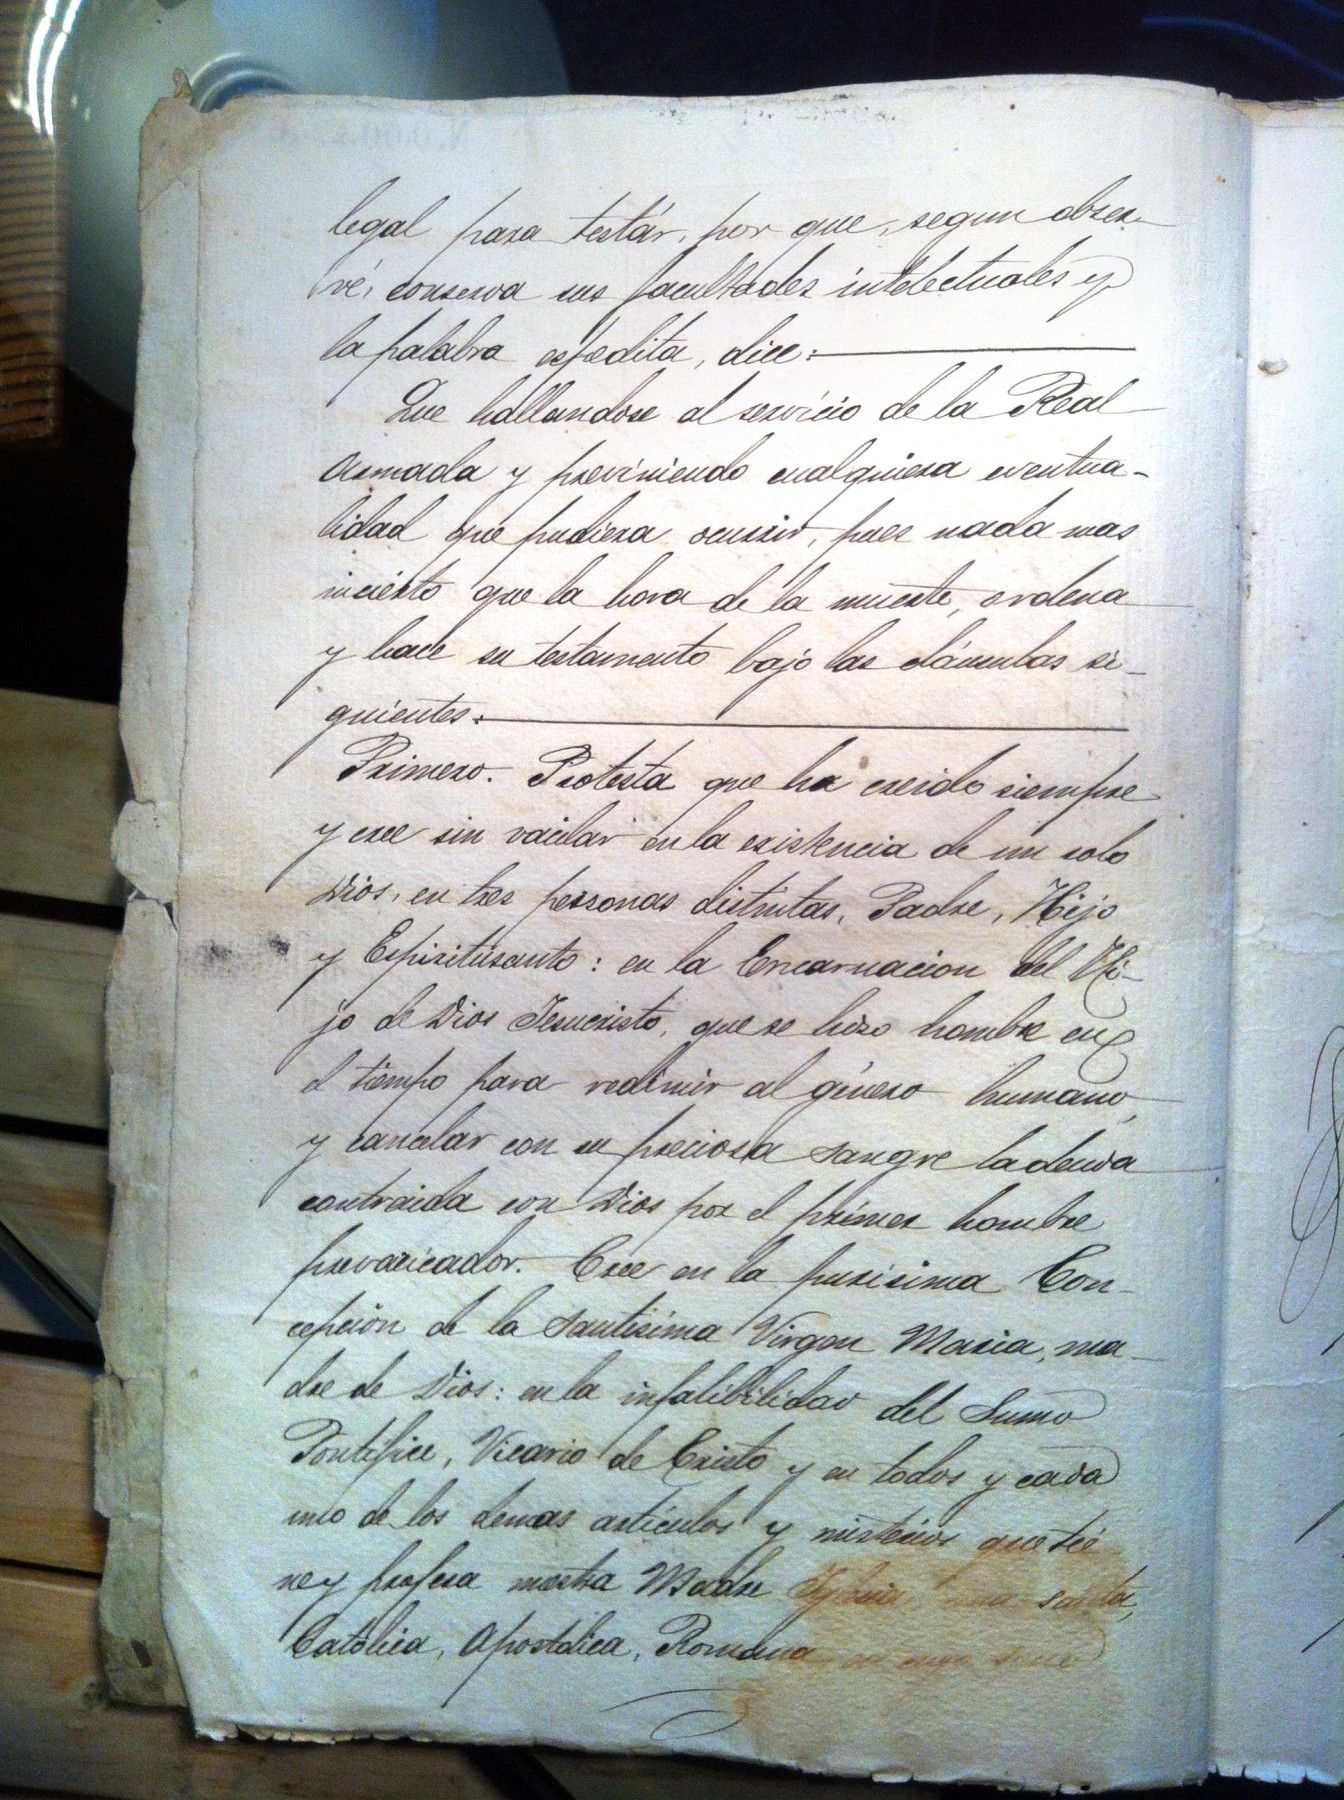 legal para testár, por que, segun obser-
vé, conserva sus facultades intelectuales y
la palabra espedita, dice:
Que hallandose al servicio de la Real
Armada y previniendo cualquiera eventua-
lidad que pudiera ocurrir, pues nada mas
incierto que la hora de la muerte, ordena
y hace su testamento bajo las cláusulas si-
guientes.
Primero. Protesta que ha creido siempre
y cree sin vacilar en la existencia de un solo
Dios, en tres personas distintas, Padre, Hijo
y Espiritusanto: en la Encarnacion del Hi-
jo de Dios Jesucristo, que se hizo hombre en
el tiempo para redimir al género humano,
y cancelar con su preciosa sangre la deuda
contraida con Dios por el primer hombre
prevaricador. Cree en la purisima Con-
cepción de la Santísima Virgen Maria, ma-
dre de Dios: en la infalibilidad del Sumo
Pontifice, Vicario de Cristo y en todos y cada
uno de los demas artículos y misterios que tie
ne y profesa nuestra Madre Iglesia, una santa,
Católica, Apostólica, Romana en cuya